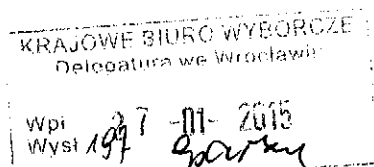 KRAJOWE BIURO WYBORCZE
Delegatura we Wrocławiu
Wpł 27 -01- 2015
Wysł 197